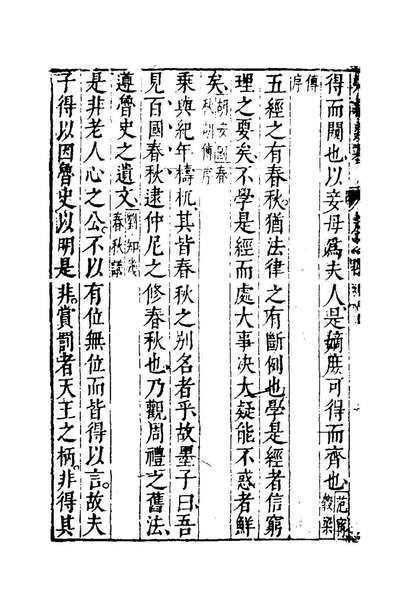 得而闚也以妾母爲夫人是嫡庶可得而齊也范甯穀梁
傳序
五經之有春秋猶法律之有斷例也學是經者信窮
理之要矣不學是經而處大事决大疑能不惑者鮮
矣胡安國春秋胡傳序
乘與紀年檮杌其皆春秋之别名者乎故墨子曰吾
見百國春秋逮仲尼之修春秋也乃觀周禮之舊法
遵魯史之遺文劉知幾春秋議
是非老人心之公不以有位無位而皆得以言故夫
子得以因魯史以明是非賞罰者天王之柄非得其